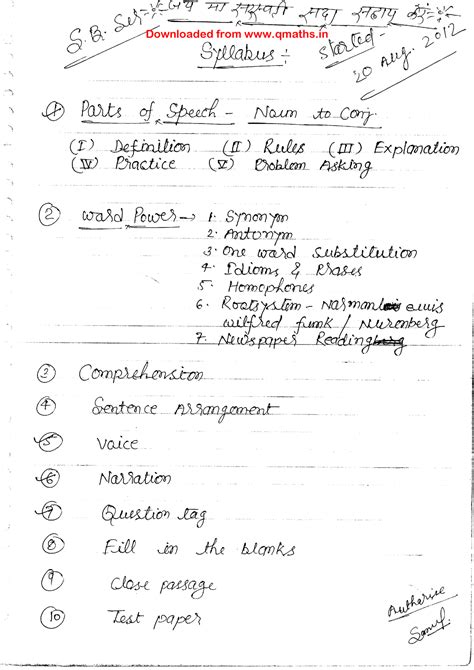 S.B. Sir
जय माँ सरस्वती सदा सहाय करें
Downloaded from www.qmaths.in
Syllabus :-
Started-
20 Aug. 2012
① Parts of Speech - Noun to Conj
(I) Definition (II) Rules (III) Explanation
(IV) Practice (V) Problem Asking
② Word Power → 1. Synonym
2. Antonym
3. One word substitution
4. Idioms & Prases
5. Homephones
6. Rootsystem - Narman lewis
wilfred funk / Nurenberg
7. Newspaper Reading
③ Comprehension
④ Sentence Arrangement
⑤ Voice
⑥ Narration
⑦ Question tag
⑧ Fill in the blanks
⑨ Close passage
⑩ Test paper